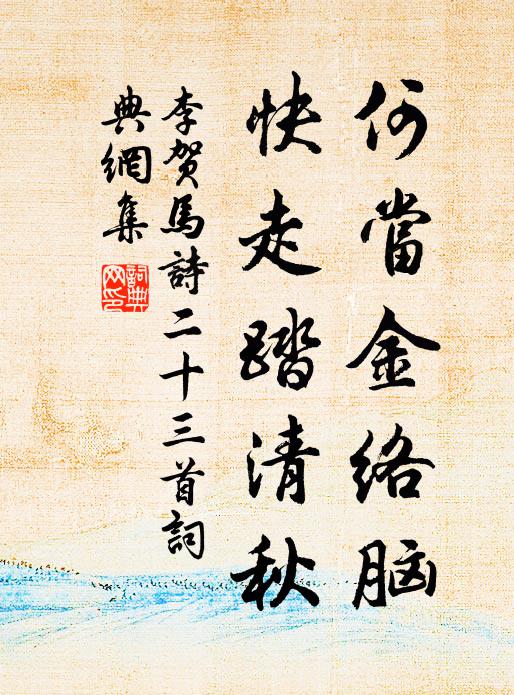 何當金络脑
快走踏清秋
李贺馬詩二十三首詞
典網集
詞典網印